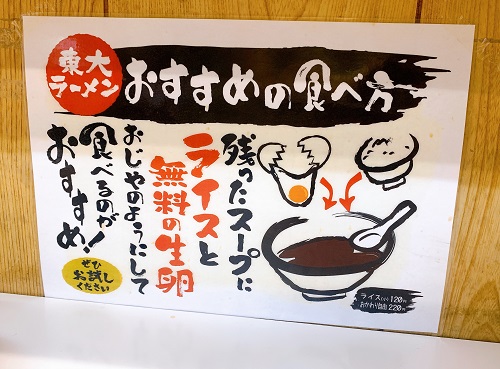 東大
ラーメン
おすすめの食べ方
残ったスープに
ライスと
無料の生卵
おじやのようにして
食べるのが
おすすめ!
ぜひ
お試し
ください
ライス(小) 120円
おかわり自由 220円